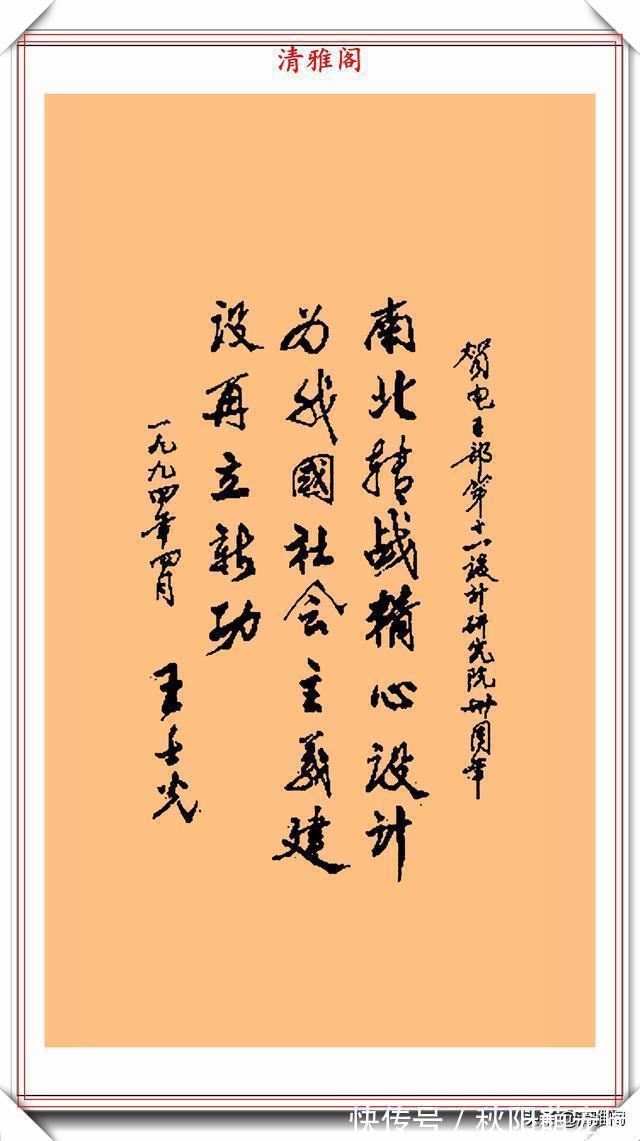 清雅阁
贺电子部第十一设计研究院卅周年
南北转战精心设计
为我國社会主义建
设再立新功
一九九四年四月
王士光
快传号 / 秋阳
头条 @清雅阁